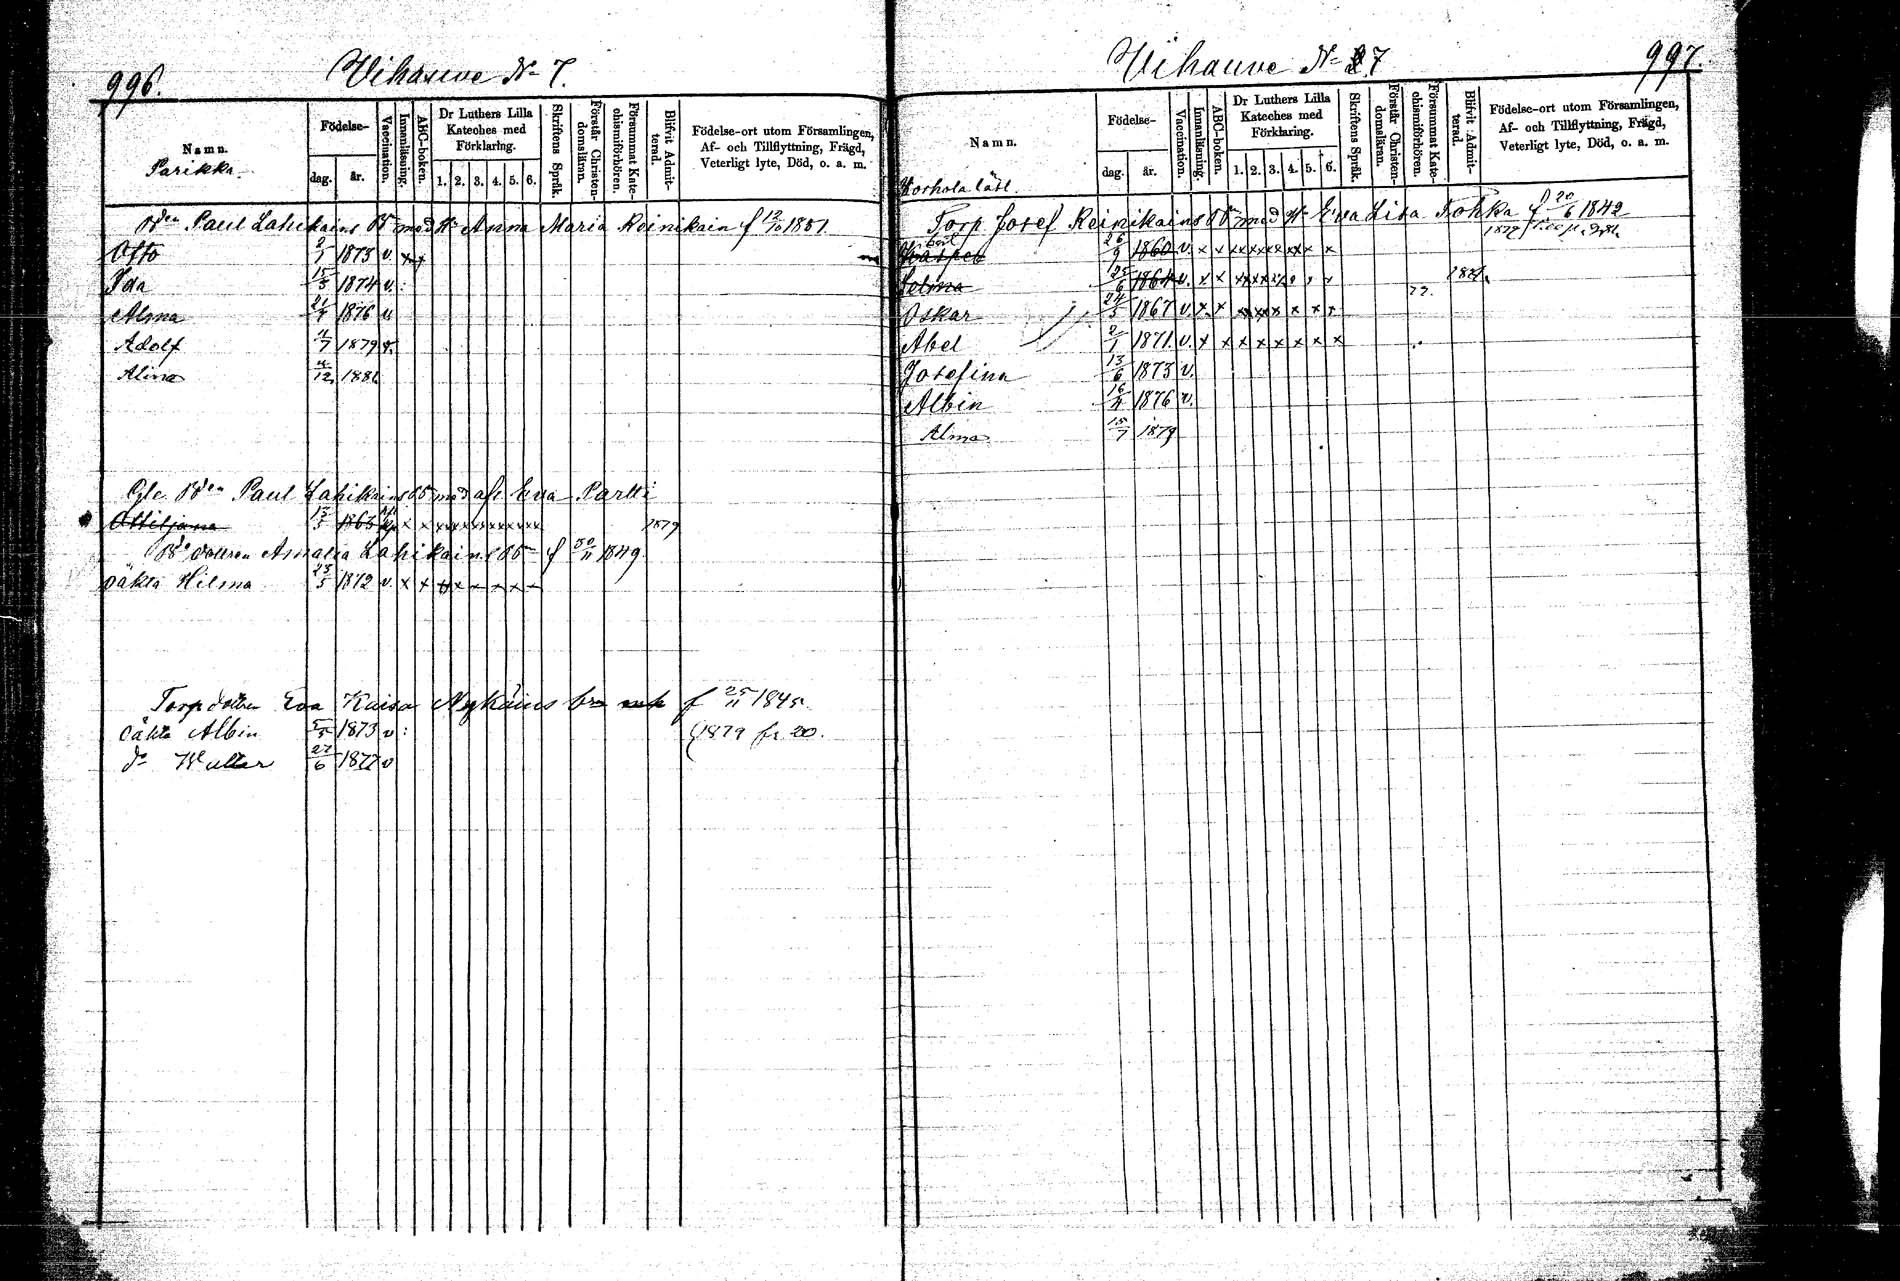 996.
Vihauve No 7.
Namn.
Parikka.
Födelse-
dag.
år.
Vaccination.
Innanläsning.
ABC-boken.
Dr Luthers Lilla
Kateches med
Förklaring.
1. 2. 3. 4. 5. 6.
Skriftens Språk.
Förstår Christen-
domsläran.
Försummat Kate-
chismiförhören.
Blifvit Admit-
terad.
Födelse-ort utom Församlingen,
Af- och Tillflyttning, Frägd,
Veterligt lyte, Död, o. a. m.
Paul Lahikains med Hu Anna Maria Reinikain f 12/10 1851.
Otto 2/7 1873 v. x x
Ida 15/5 1874 v.
Alma 21/4 1876 v
Adolf 4/7 1879 v.
Alina 4/12 1881
Paul Lahikains med afl. Eva Partti
Ottiljana 13/5 1863 x x x x x x x x x x x 1879
Amalia Lahikains f 30/11 1849.
oäkta Hilma 23/5 1872 v. x x x x x x x x
Torpdottren Eva Kaisa Nykäins f 25/11 1845
oäkta Albin 5/5 1873 v (1879 fr. 20.
do Walter 27/6 1877 v
Vihauve No 7
997.
Namn.
Korhola lätt.
Födelse-
dag.
år.
Vaccination.
Innanläsning.
ABC-boken.
Dr Luthers Lilla
Kateches med
Förklaring.
1. 2. 3. 4. 5. 6.
Skriftens Språk.
Förstår Christen-
domsläran.
Försummat Kate-
chismiförhören.
Blifvit Admit-
terad.
Födelse-ort utom Församlingen,
Af- och Tillflyttning, Frägd,
Veterligt lyte, Död, o. a. m.
Torp Josef Reinikains med Hu Eva Lisa Tohka f 20/6 1842
Kasper 26/9 1860 v. x x x x x x x x x x
Selma 25/6 1864 v. x x x x x x
Oskar 24/5 1867 v. x x x x x x x x
Abel 2/1 1871. v. x x x x x x x x
Josefina 13/6 1873 v.
Albin 16/4 1876 v.
Alma 15/7 1879